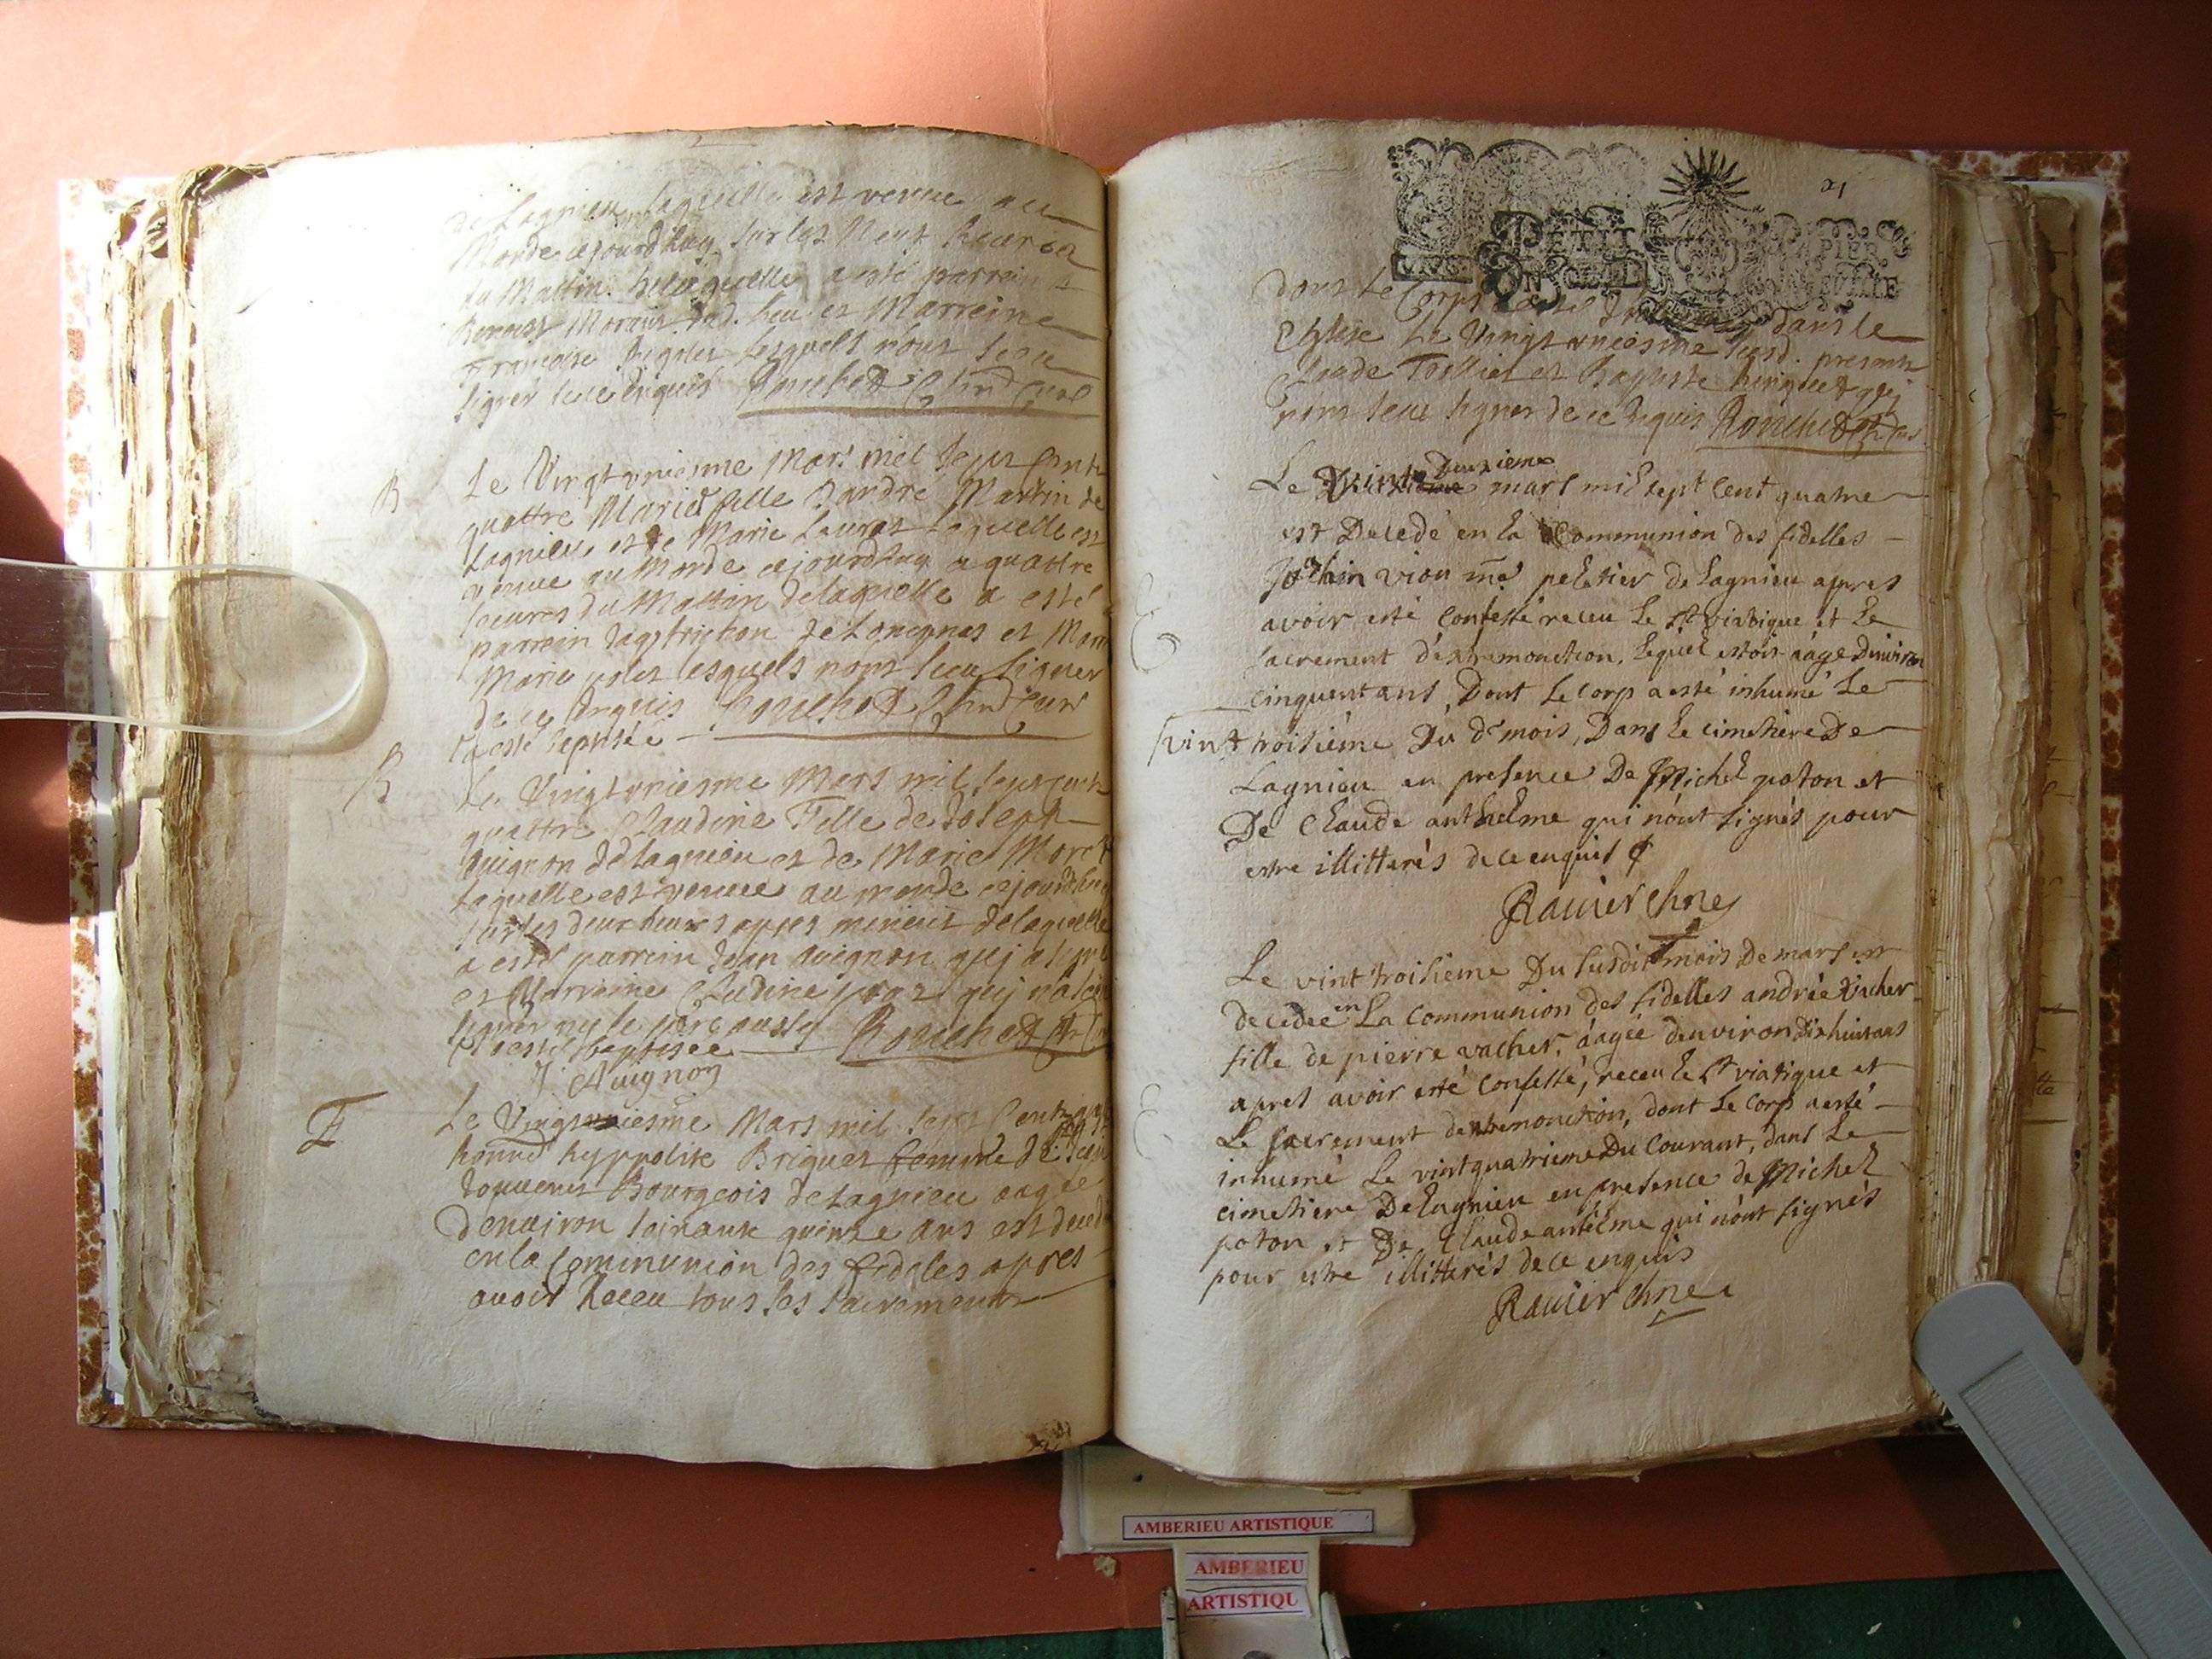 de Lagnieu laquelle est venue au
Monde cejourdhuy sur les Neuf heures
du Mattin delaquelle a esté parrain
Morain dud. lieu et Marreine
Francoise lesquels nont sceu
signer de ce enquis Ronchet
B
Le Vingt vniesme Mars mil sept Cents
quattre Marie fille dandré Martin de
Lagnieu et de Marie Lauras Laquelle est
venue au Monde cejourdhuy a quattre
heures du Mattin delaquelle a esté
parrain et Marr
Marie lesquels nont sceu signer
de ce enquis Ronchet
Et a esté baptisée
B
Le Vingt vniesme Mars mil sept cents
quattre Claudine Fille de Joseph
Auignon de Lagnieu et de Marie Moret
Laquelle est venue au monde cejourdhuy
sur les deux heures apres minuit delaquelle
a esté parrain Jean Auignon quj a signé
et Marreine Cludine quj na sceu
signer ny le pere aussy Ronchet
Et a esté baptisée
J. Auignon
F
Le Vingt vniesme Mars mil sept Cents
hyppolite Briquet femme de
Bourgeois de Lagnieu aagée
denuiron soixante quinze ans est decedée
en la Communion des fideles apres
auoir Receu tous les sacrements
21
PETIT PAPIER
dont Le Corps a esté dans le
Eglise Le Vingt deuxiesme susd. presents
Claude Tollier et Baptiste quj
nont sceu signer de ce enquis Ronchet
Deuxieme
Le Vint mars mil sept cent quatre
est Decedé en la Communion des fidelles
viou me peletier de Lagnieu apres
avoir esté confessé receu le st viatique et Le
sacrement dextremonction, Lequel estoit aagé Denviron
cinquent ans, Dont Le corp a esté inhumé Le
vint troisiéme Du d mois, Dans Le cimetiere De
Lagnieu en presence De Michel poton et
De Claude anthelme qui n'ont signés pour
estre illitterés de ce enquis
Ravier
Le vint troisieme Du susdit mois De mars est
decedée en La Communion des fidelles andrée vacher
fille de pierre vacher, aagée denviron dixhuit ans
apres avoir esté confessé, receu le st viatique et
Le sacrement dextremonction, dont Le Corp a esté
inhumé Le vint quatrieme Du Courant, dans Le
cimetiere De Lagnieu en presence de Michel
poton et De Claude antelme qui n'ont signés
pour estre illitterés de ce enquis
Ravier
AMBERIEU ARTISTIQUE
AMBERIEU
ARTISTIQU